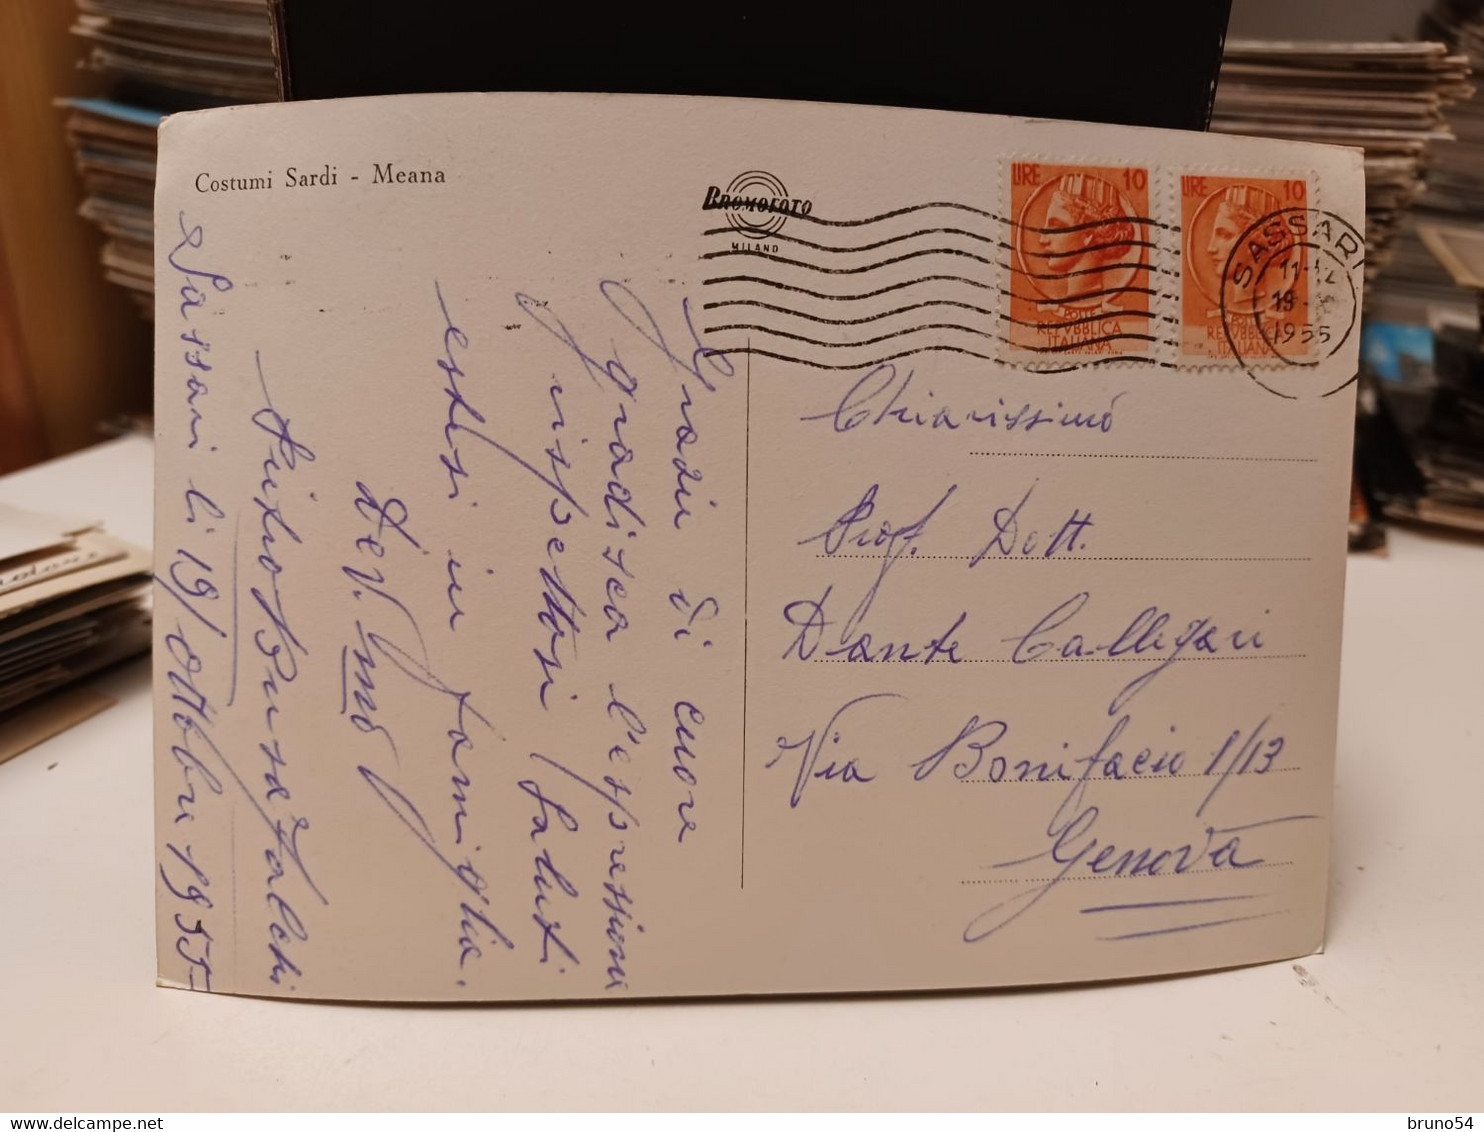 Costumi Sardi - Meana
BROMOFOTO
MILANO
LIRE 10
POSTE
REPVBBLICA
ITALIANA
LIRE 10
REPVBBLICA
ITALIANA
SASSARI
1955
Grazie di cuore
gradisca l'espressioni
rispettosi saluti
estesi in famiglia.
Dev.mo
Sassari li 19/ottobre 1955
Chiarissimo
Prof. Dott.
Dante Callegari
Via Bonifacio 1/13
Genova
delcampe.net
bruno54